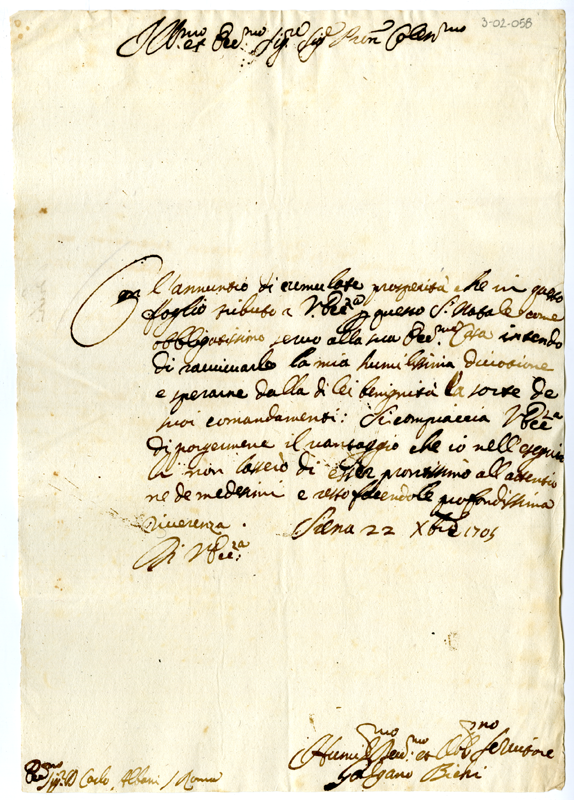 3-02-058
Ill.mo et Ecc.mo Sig.re Sig.r Pron Colen.mo
Con l'annuntio di cumulate prosperità che in questo
foglio tributo a V. Ecc.za p questo S. Natale come
obbligatissimo servo alla sua Ecc.ma Casa intendo
di ravvivarle la mia humilissima divotione
e sperarne dalla di lei benignità la sorte de
suoi comandamenti: Si compiaccia V. Ecc.za
di porgermene il vantaggio che io nell'
non lascerò di esser prontissimo all'attentio
ne de medesimi e resto facendole profondissima
Riverenza. Siena 22 Xbre 1705
Di V. Ecc.za
Humil.mo Dev.mo et Obb.mo Servitore
Galgano Bichi
Ecc.mo Sig.r D Carlo Albani / Roma